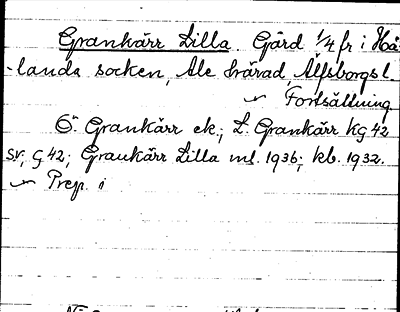 Grankärr Lilla. Gård 1/4 fr i Hoå
-landa socken, Ale härad, Älfsborgs l.
Fortsättning.
Ö. Grankärr ek.; L. Grankärr Kg 42
sv, G 42; Grankärr Lilla ml. 1936; kb. 1932.
Prep. i